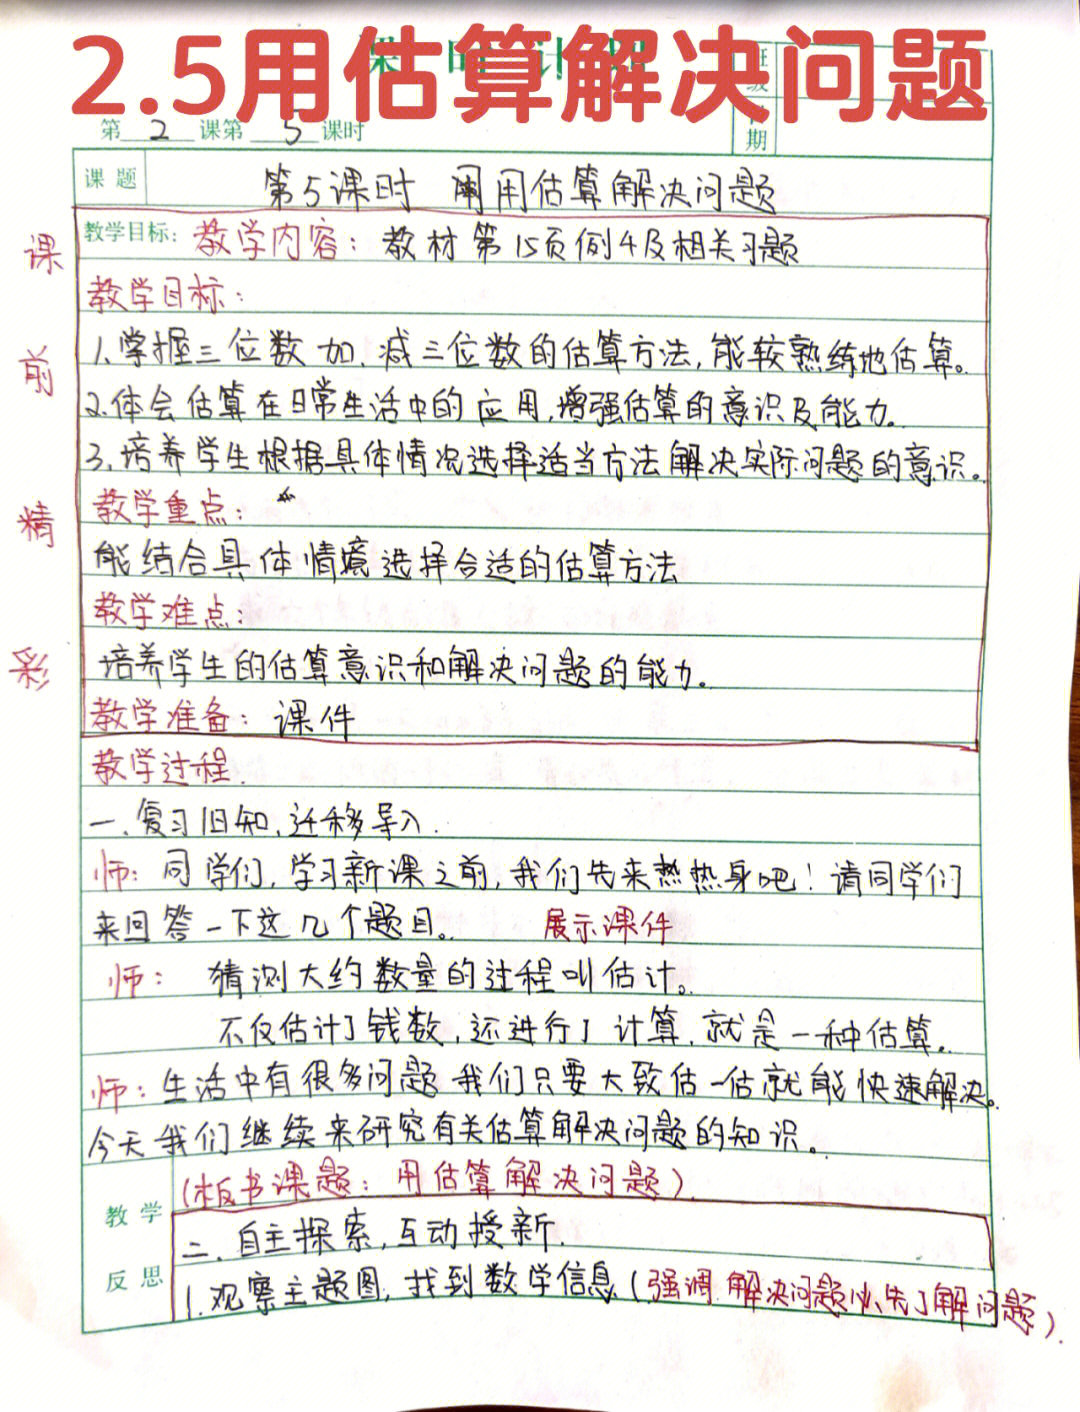 2.5用估算解决问题
班级
第 2 课第 5 课时
期
课题 第5课时 用用估算解决问题
教学目标: 教学内容: 教材第15页例4及相关习题
教学目标:
1.掌握三位数加、减三位数的估算方法,能较熟练地估算。
2.体会估算在日常生活中的应用,增强估算的意识及能力。
3.培养学生根据具体情况选择适当方法解决实际问题的意识。
教学重点:
能结合具体情境选择合适的估算方法
教学难点:
培养学生的估算意识和解决问题的能力。
教学准备: 课件
课前精彩
教学过程.
一、复习旧知,迁移导入.
师: 同学们,学习新课之前,我们先来热热身吧!请同学们
来回答一下这几个题目。 展示课件
师: 猜测大约数量的过程叫估计。
不仅估计了钱数,还进行了计算,就是一种估算。
师: 生活中有很多问题我们只要大致估一估就能快速解决。
今天我们继续来研究有关估算解决问题的知识。
(板书课题: 用估算解决问题).
教学反思
二、自主探索,互动授新.
1.观察主题图,找到数学信息(强调解决问题必先了解问题).